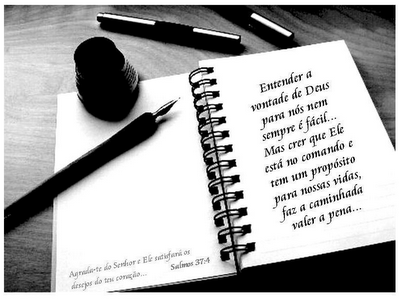 Agrada-te do Senhor e Ele satisfará os
desejos do teu coração...
Salmos 37:4
Entender a
vontade de Deus
para nós nem
sempre é fácil...
Mas crer que Ele
está no comando e
tem um propósito
para nossas vidas,
faz a caminhada
valer a pena...